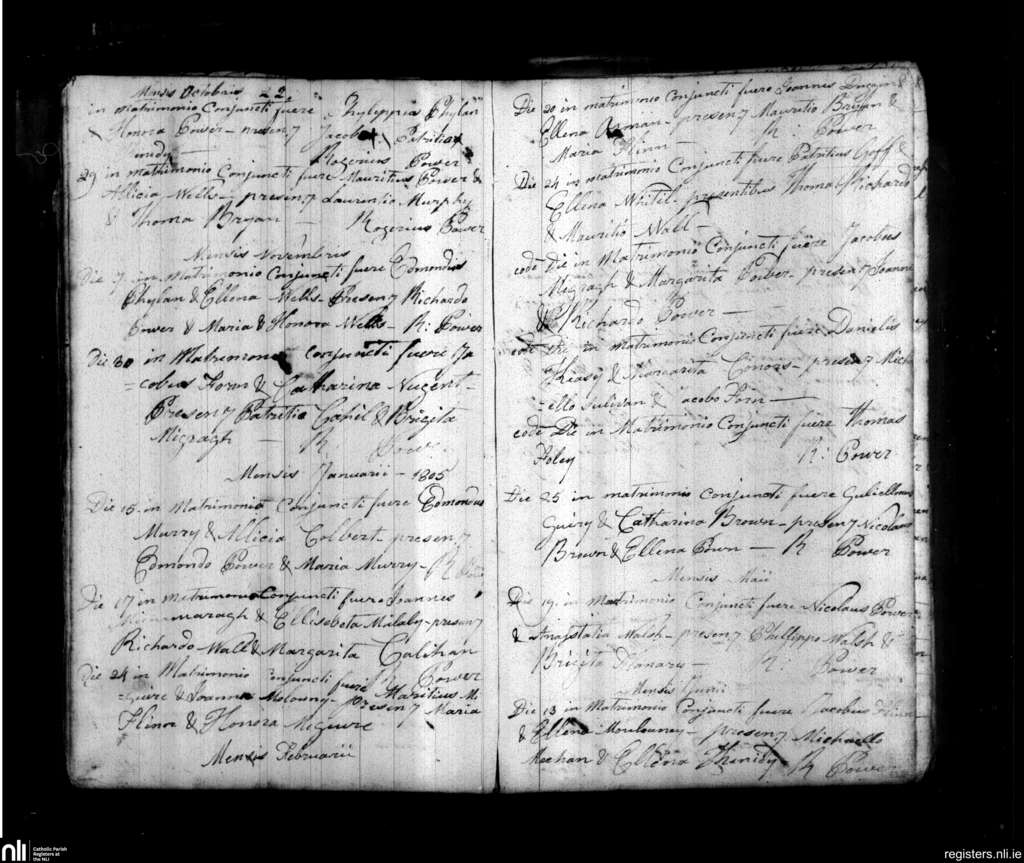 Mensis Octobris 22
in matrimonio Conjuncti fuere Phylippia Phylan
Honora Power - presen7 Jacobo Patritio
Rogerius Power
29 in matrimonio Conjuncti fuere Mauritius Power &
Allicia Wells - presen7 Laurentio Murphy
& Thoma Bryan - Rogerius Power
Mensis Novembris
Die 7 in Matrimonio Conjuncti fuere Edmondus
Phylan & Ellena Wells - Presen7 Richardo
Power & Maria & Honora Wells - R: Power
Die 30 in Matrimonio conjuncti fuere Ja
=cobus Foran & Catharina Nugent -
Presen7 Patritio Cahil & Brigita
Migragh - R: Powe
Mensis Januarii - 1805
Die 15 in Matrimonio Conjuncti fuere Edmondus
Murry & Allicia Colbert - presen7
Edmondo Power & Maria Murry - R Power
Die 17 in Matrimonio Conjuncti fuere Joannes
& Ellisebeta - presen7
Richardo Wall & Margarita Calihan
Power
Die 24 in Matrimonio Conjuncti fuere Mauritius Mc
=Guire & Joanna Molowny - presen7 Maria
Flinn & Honora McGuire
Mensis Februarii
Die 20 in matrimonio Conjuncti fuere Joannes
Ellena - presen7 Mauritio Bryan &
Maria Flinn - R Power
Die 24 in matrimonio Conjuncti fuere Patritius Goff &
Ellena Whitel - presentibus Thoma & Richardo
& Mauritio Wall -
eodem Die in Matrimonio Conjuncti fuere Jacobus
Migragh & Margarita Power - presen7 Joanne
& Richardo Power -
eodem Die in Matrimonio Conjuncti fuere Danielis
Keasy & Margarita Conors - presen7 Mich
=ello Sulivan & acobo Foran -
eode Die in Matrimonio Conjuncti fuere Thomas
Foley R: Power
Die 25 in matrimonio Conjuncti fuere Guliellmus
Guiry & Catharina Brown - presen7 Nicolaus
Brown & Ellena Pown - R Power
Mensis Maii
Die 19 in Matrimonio Conjuncti fuere Nicolaus Power
& Anastatia Walsh - presen7 Phillippo Walsh &
Brigita - R: Power
Mensis Junii
Die 13 in Matrimonio Conjuncti fuere Jacobus Flinn
& Ellena Moulouney - presen7 Michaello
Meehan & Ellena R Power
nli
Catholic Parish
Registers at
the NLI
registers.nli.ie